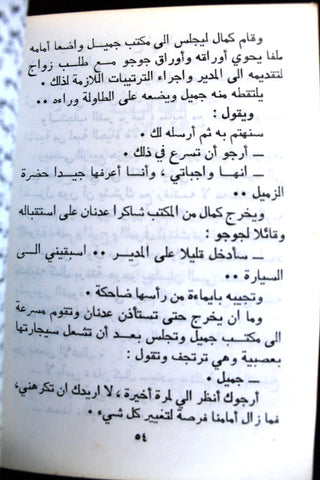 وقام كمال ليجلس الى مكتب جميل واضعا أمامه
ملفا يحوي أوراقه وأوراق جوجو مع طلب زواج
لتقديمه الى المدير واجراء الترتيبات اللازمة لذلك ٠
يلتقطه منه جميل ويضعه على الطاولة وراءه ٠٠
ويقول :
سنهتم به ثم أرسله لك ٠
ــ أرجو أن تسرع في ذلك ٠
ــ انها واجباتي ، وأنا أعرفها جيدا حضرة
الزميل ٠٠
ويخرج كمال من المكتب شاكرا عدنان على استقباله
وقائلا لجوجو :
ــ سأدخل قليلا على المدير ٠٠ اسبقيني الى
السيارة ٠٠
وتجيبه بايماءة من رأسها ضاحكة ٠
وما ان يخرج حتى تستأذن عدنان وتقوم مسرعة
الى مكتب جميل وتجلس بعد أن تشعل سيجارتها
بعصبية وهي ترتجف وتقول :
ــ جميل ٠
أرجوك أنظر الي لمرة أخيرة ، لا اريدك ان تكرهني،
فما زال أمامنا فرصة لتغيير كل شيء ٠
٥٤